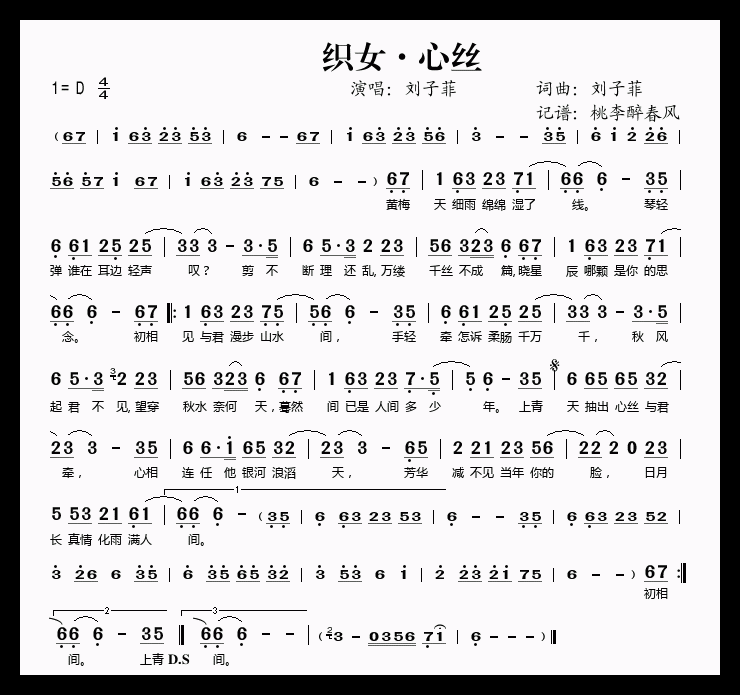 织女·心丝
1= D 4/4 演唱：刘子菲 词曲：刘子菲
记谱：桃李醉春风
（67 | i 63 23 53 | 6 - - 67 | i 63 23 56 | 3 - - 35 | 6 i 2 26 |
56 57 i 67 | i 63 23 75 | 6 - - ）67 | 1 63 23 71 | 66 6 - 35 |
黄梅 天 细雨 绵绵 湿了 线。 琴轻
6 61 25 25 | 33 3 - 3·5 | 6 5·3 2 23 | 56 323 6 67 | 1 63 23 71 |
弹 谁在 耳边 轻声 叹？ 剪 不 断 理 还 乱,万缕 千丝 不成 篇,晓星 辰 哪颗 是你 的思
66 6 - 67 |: 1 63 23 75 | 56 6 - 35 | 6 61 25 25 | 33 3 - 3·5 |
念。 初相 见 与君 漫步 山水 间， 手轻 牵 怎诉 柔肠 千万 千， 秋 风
6 5·3 32 23 | 56 323 6 67 | 1 63 23 7·5 | 5 6 - 35 | 6 65 65 32 |
起 君 不 见,望穿 秋水 奈何 天,蓦然 间 已是 人间 多 少 年。 上青 天 抽出 心丝 与君
23 3 - 35 | 6 6·i 65 32 | 23 3 - 65 | 2 21 23 56 | 22 2 0 23 |
牵， 心相 连 任 他 银河 浪滔 天， 芳华 减 不见 当年 你的 脸， 日月
1
5 53 21 61 | 66 6 - （35 | 6 63 23 53 | 6 - - 35 | 6 63 23 52 |
长 真情 化雨 满人 间。
3 26 6 35 | 6 35 65 32 | 3 53 6 i | 2 23 21 75 | 6 - - ）67 :|
初相
2 3
66 6 - 35 || 66 6 - - | （23 - 0356 7i | 6 - - - ）||
间。 上青 D.S 间。